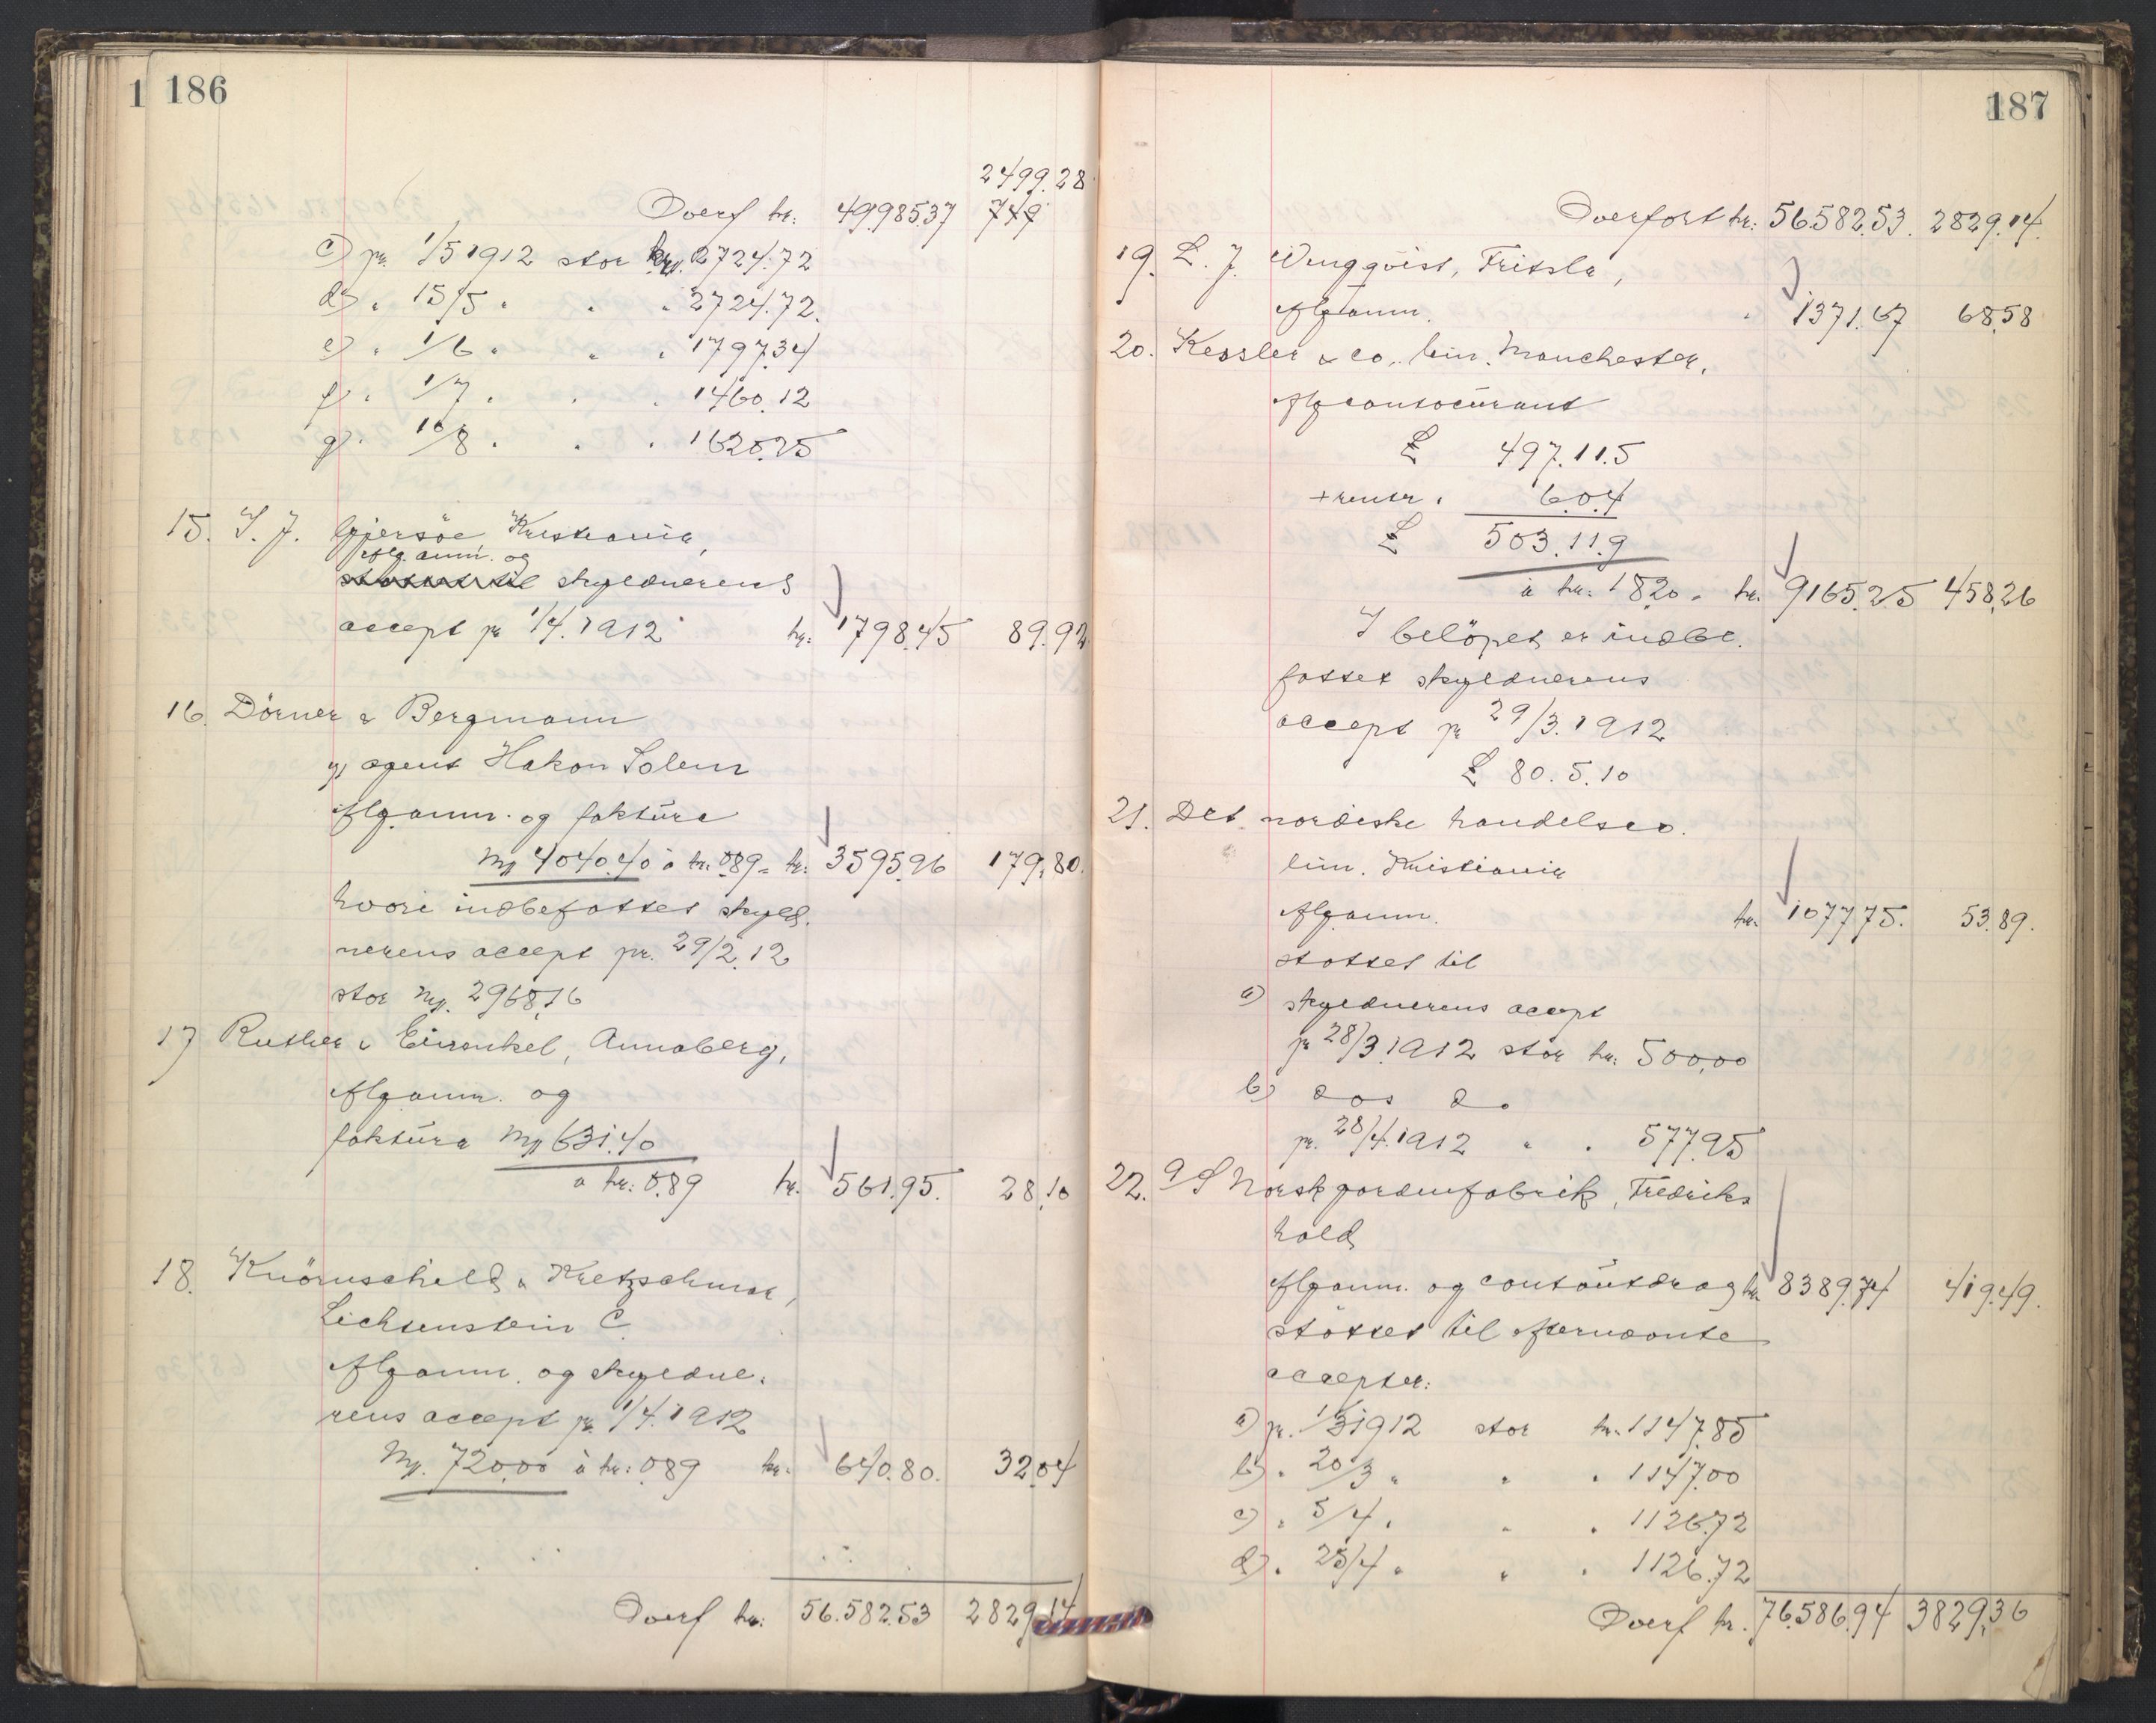 1 186
2499.28
Overf kr: 49.985.37 749
c) pr. 1/5 1912 stor kr. 2724.72
d) " 15/5 " " " 2724.72.
e) " 1/6 " " " 1797.34
f) " 1/7 " " " 1460.12
g) " 10/8 " " " 1625.25
15. I. J. Gjersøe Kristiania,
Afg.anm. og
støttet til skyldnerens
accept pr 1/4. 1912 kr: 1798.45 89.92
16. Dörner & Bergmann
v/ agent Hakon Solem
Afg.anm. og faktura
Mk 4040.40 à kr. 0.89 = kr: 3595.96 179.80.
hvori indbefattet skyld-
nerens accept pr. 29/2.12
stor Mk. 2968.16
17 Ruther & Einenkel, Annaberg,
Afg.anm. og
faktura Mk 631.40
a kr: 0.89 kr. 561.95. 28.10
18. Knörnschild & Kretzschmar,
Lichtenstein C.
Afg.anm. og skyldne-
rens accept pr. 1/4. 1912
Mk. 720.00 à kr: 0.89 kr. 640.80. 32.04
Overf kr: 56.582.53 2829.14
187
Overført kr: 56.582.53. 2829.14.
19. L. J. Wingqvist, Fritsla,
Afg.anm. " 1371.67 68.58
20. Kessler & Co. lim. Manchester,
Afg contocurant
£ 497.11.5
+ renter " 6.0.4
£ 503.11.9
à kr: 18.20 = kr. 9165.25 458.26
I beløpet er indbe-
fattet skyldnerens
accept pr 29/3. 1912
£ 80.5.10
21. Det nordiske handelsco.
lim. Kristiania
Afg.anm. kr. 1077.75. 53.89.
støttet til
a) skyldnerens accept
pr 28/3 1912 stor kr. 500.00
b) dos do
pr. 28/4. 1912 " " 577.95
22. A/S Norsk gardinfabrik, Fredriks
hald,
Afg.anm. og contoutdrag kr 8389.74 419.49.
støttet til efternevnte
accepter:
a) pr. 1/3 1912 stor kr. 1147.85
b) " 20/3 " " " 1147.00
c) " 5/4 " " " 1126.72
d) " 25/4 " " " 1126.72
Overf kr. 76.586.94 3829.36